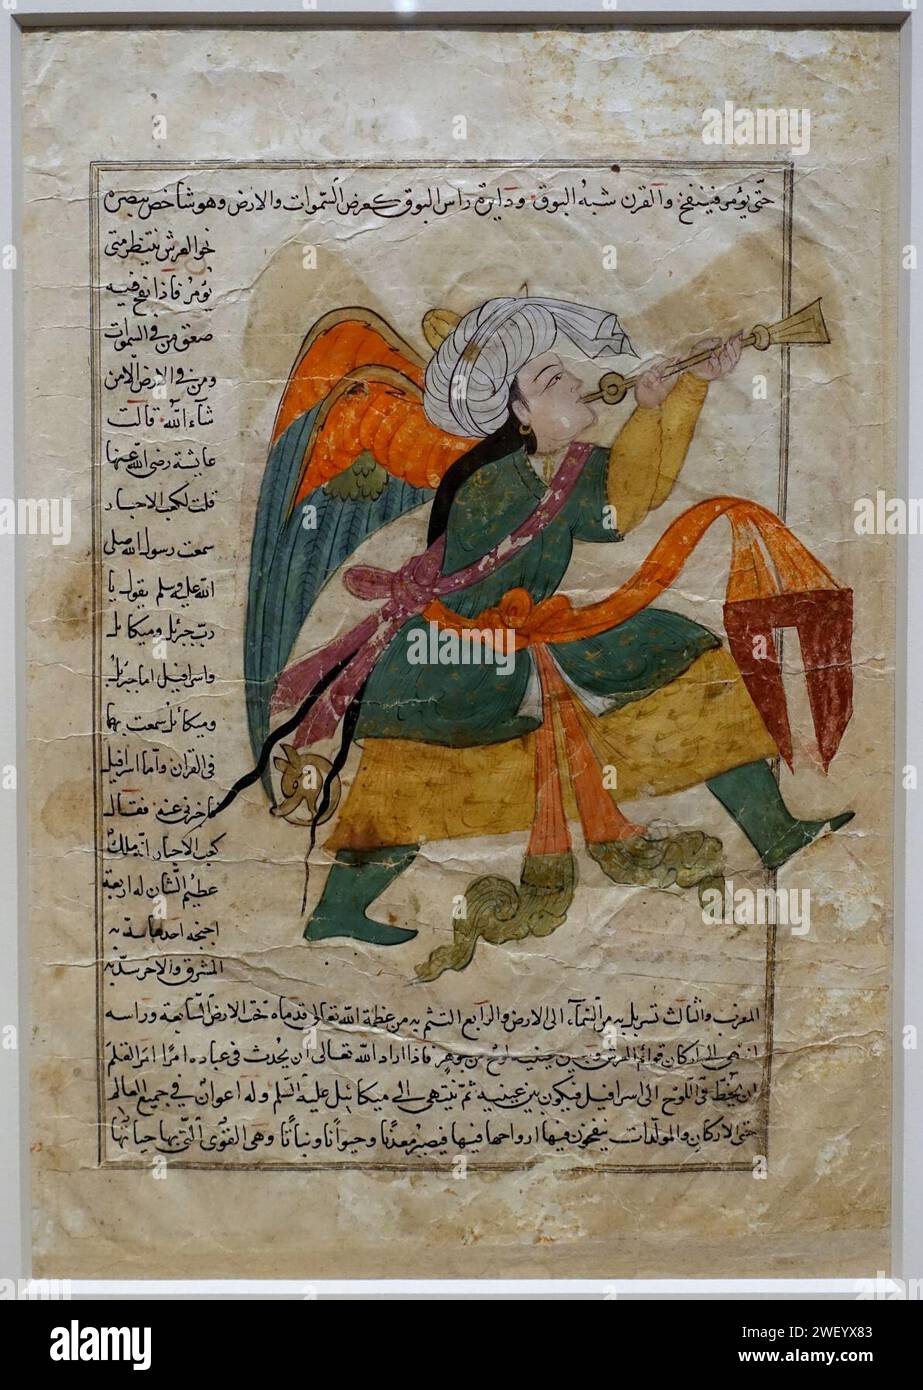 حتّى يؤمر فينفخ والقرن شبه البوق ودايرة راس البوق كعرض السّموات والارض وهو شاخص ببصره
نحو العرش ينتظر متى
يؤمر فاذا نفخ فيه
صعق من في السموات
ومن في الارض الا من
شآء الله قالت
عايشة رضى الله عنها
قلت لكعب الاحبار
سمعت رسول الله صلى
الله عليه وسلم يقول يا
ربّ جبرئل وميكائل
واسرافيل اما جبرئل
وميكائل سمعت بهما
فى القران وأمّا اسرافيل
فاخبرنى عنه فقال
كعب الاحبار انه ملك
عظيم الشّان له اربعة
اجنحه احدها سدّ به
المشرق والاخر سدّ به
المغرب والثالث تسربل به من السّمآء الى الارض والرابع التثم به من عظمة الله تعالى قدماه تحت الارض السّابعة وراسه
انتهى الى اركان قوائم العرش وبين عينيه لوح من جوهر فاذا اراد الله تعالى ان يحدث فى عباده امرا امر القلم
ان يخط فى اللّوح الى اسرافيل فيكون بين عينيه ثمّ ينتهى الى ميكائيل عليه السّلم وله اعوان فى جميع العالم
حتى الاركان والمولدات ينفخون فيها ارواحها فيها فيصير معدنا وحيوانا ونباتا وهى القوى الّتى بها حياتها
alamy
Image ID: 2WEYX83
www.alamy.com